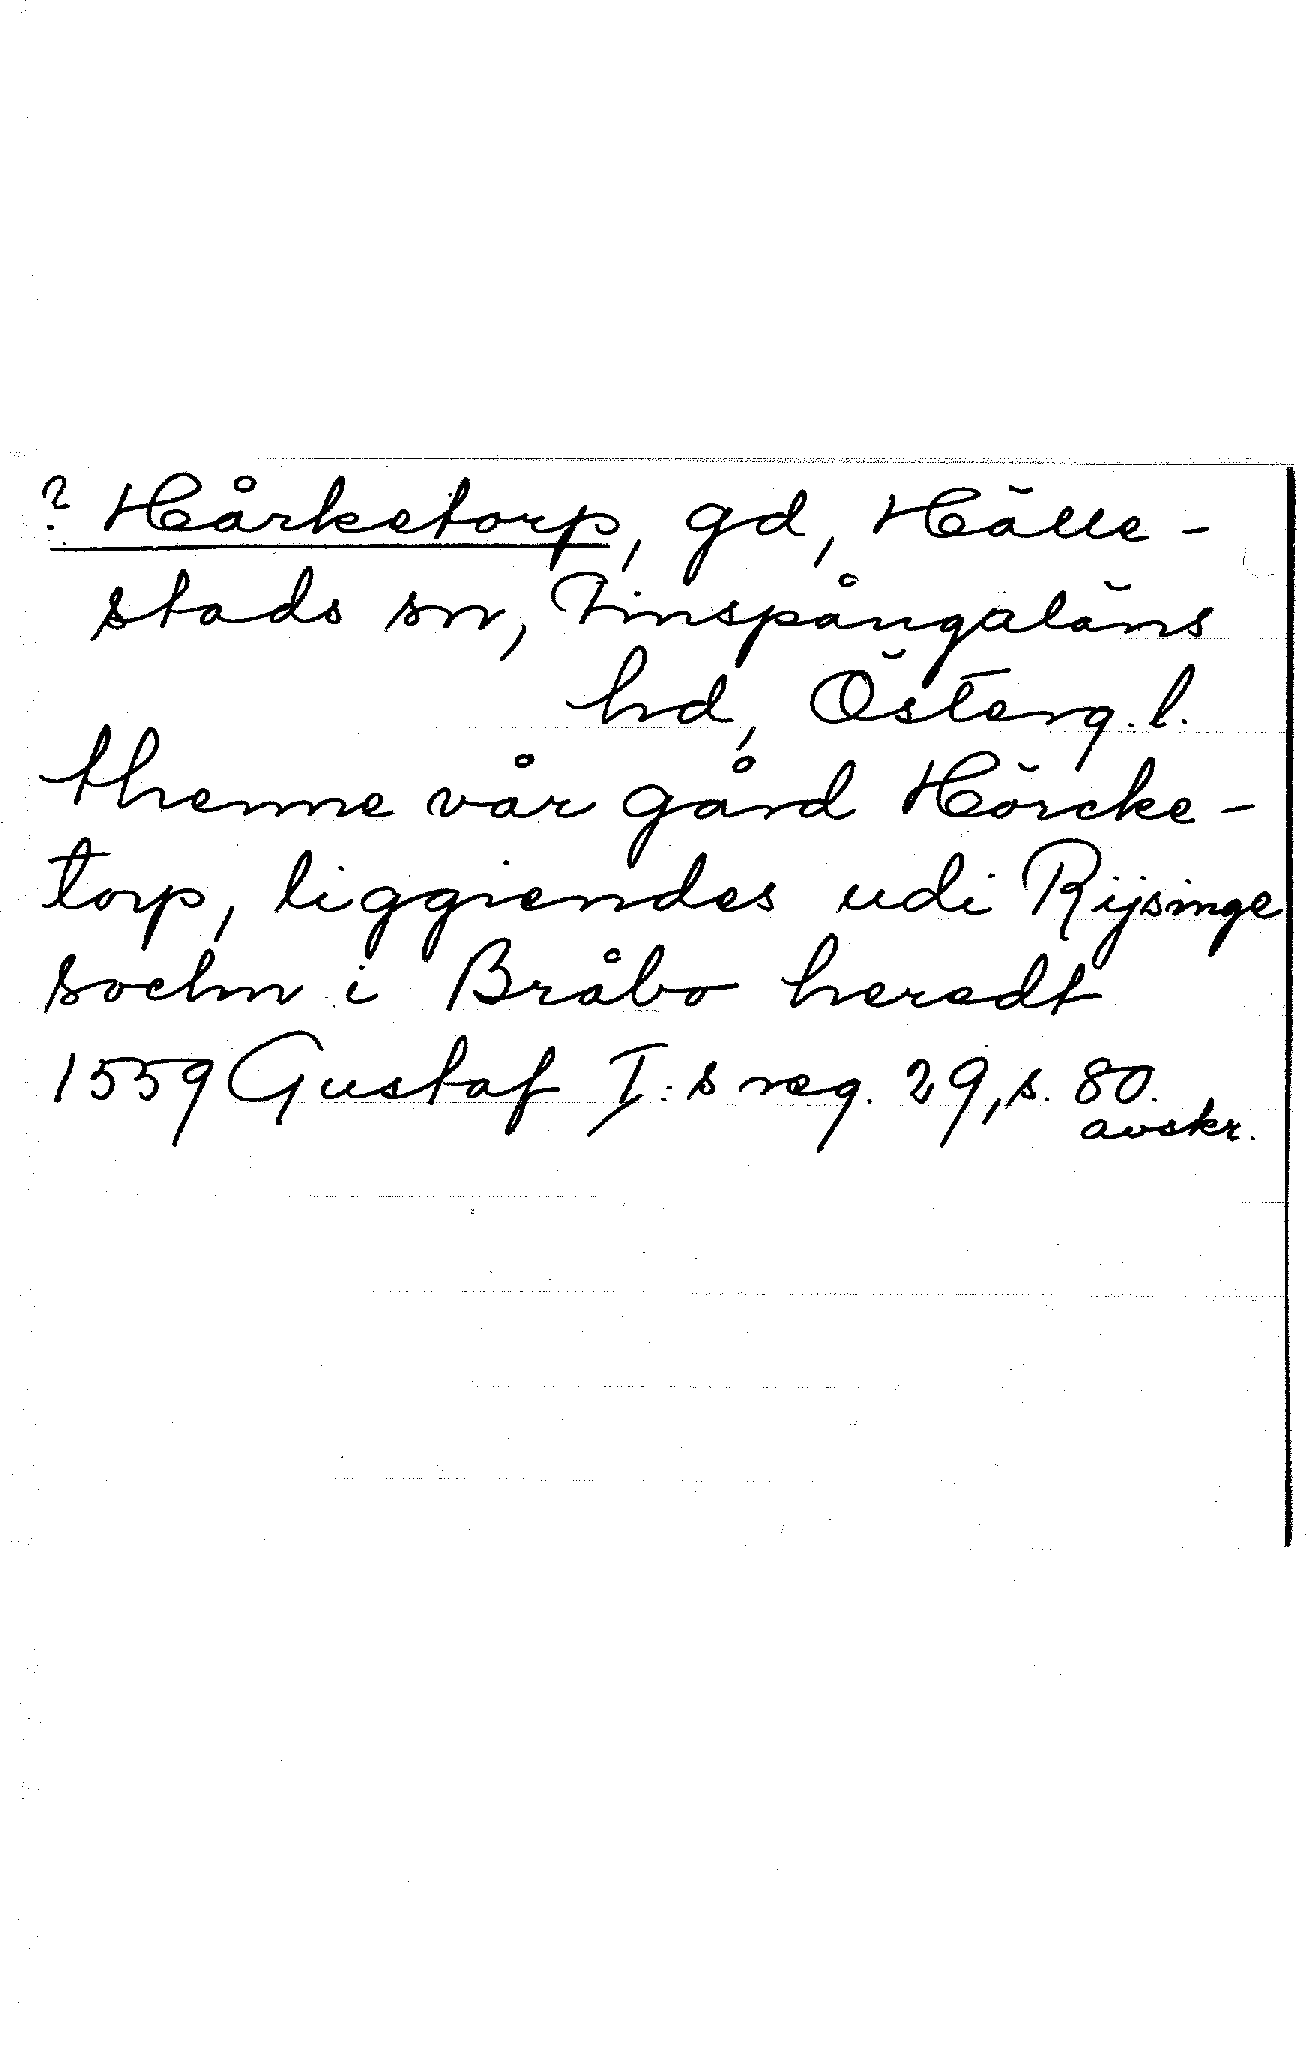 ? Hårketorp, gd, Hälle-
stads sn, Finspångaläns
hd, Österg.l.
thenne vår gård Hörcke-
torp, liggiendes udi Rijsinge
sochn i Bråbo heredt
1559 Gustaf I:s reg. 29, s. 80.
avskr.